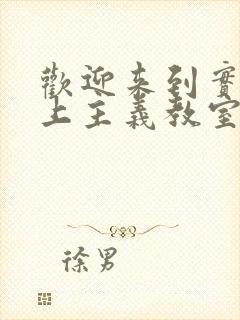 歡迎來到實
上主義教室
徐男